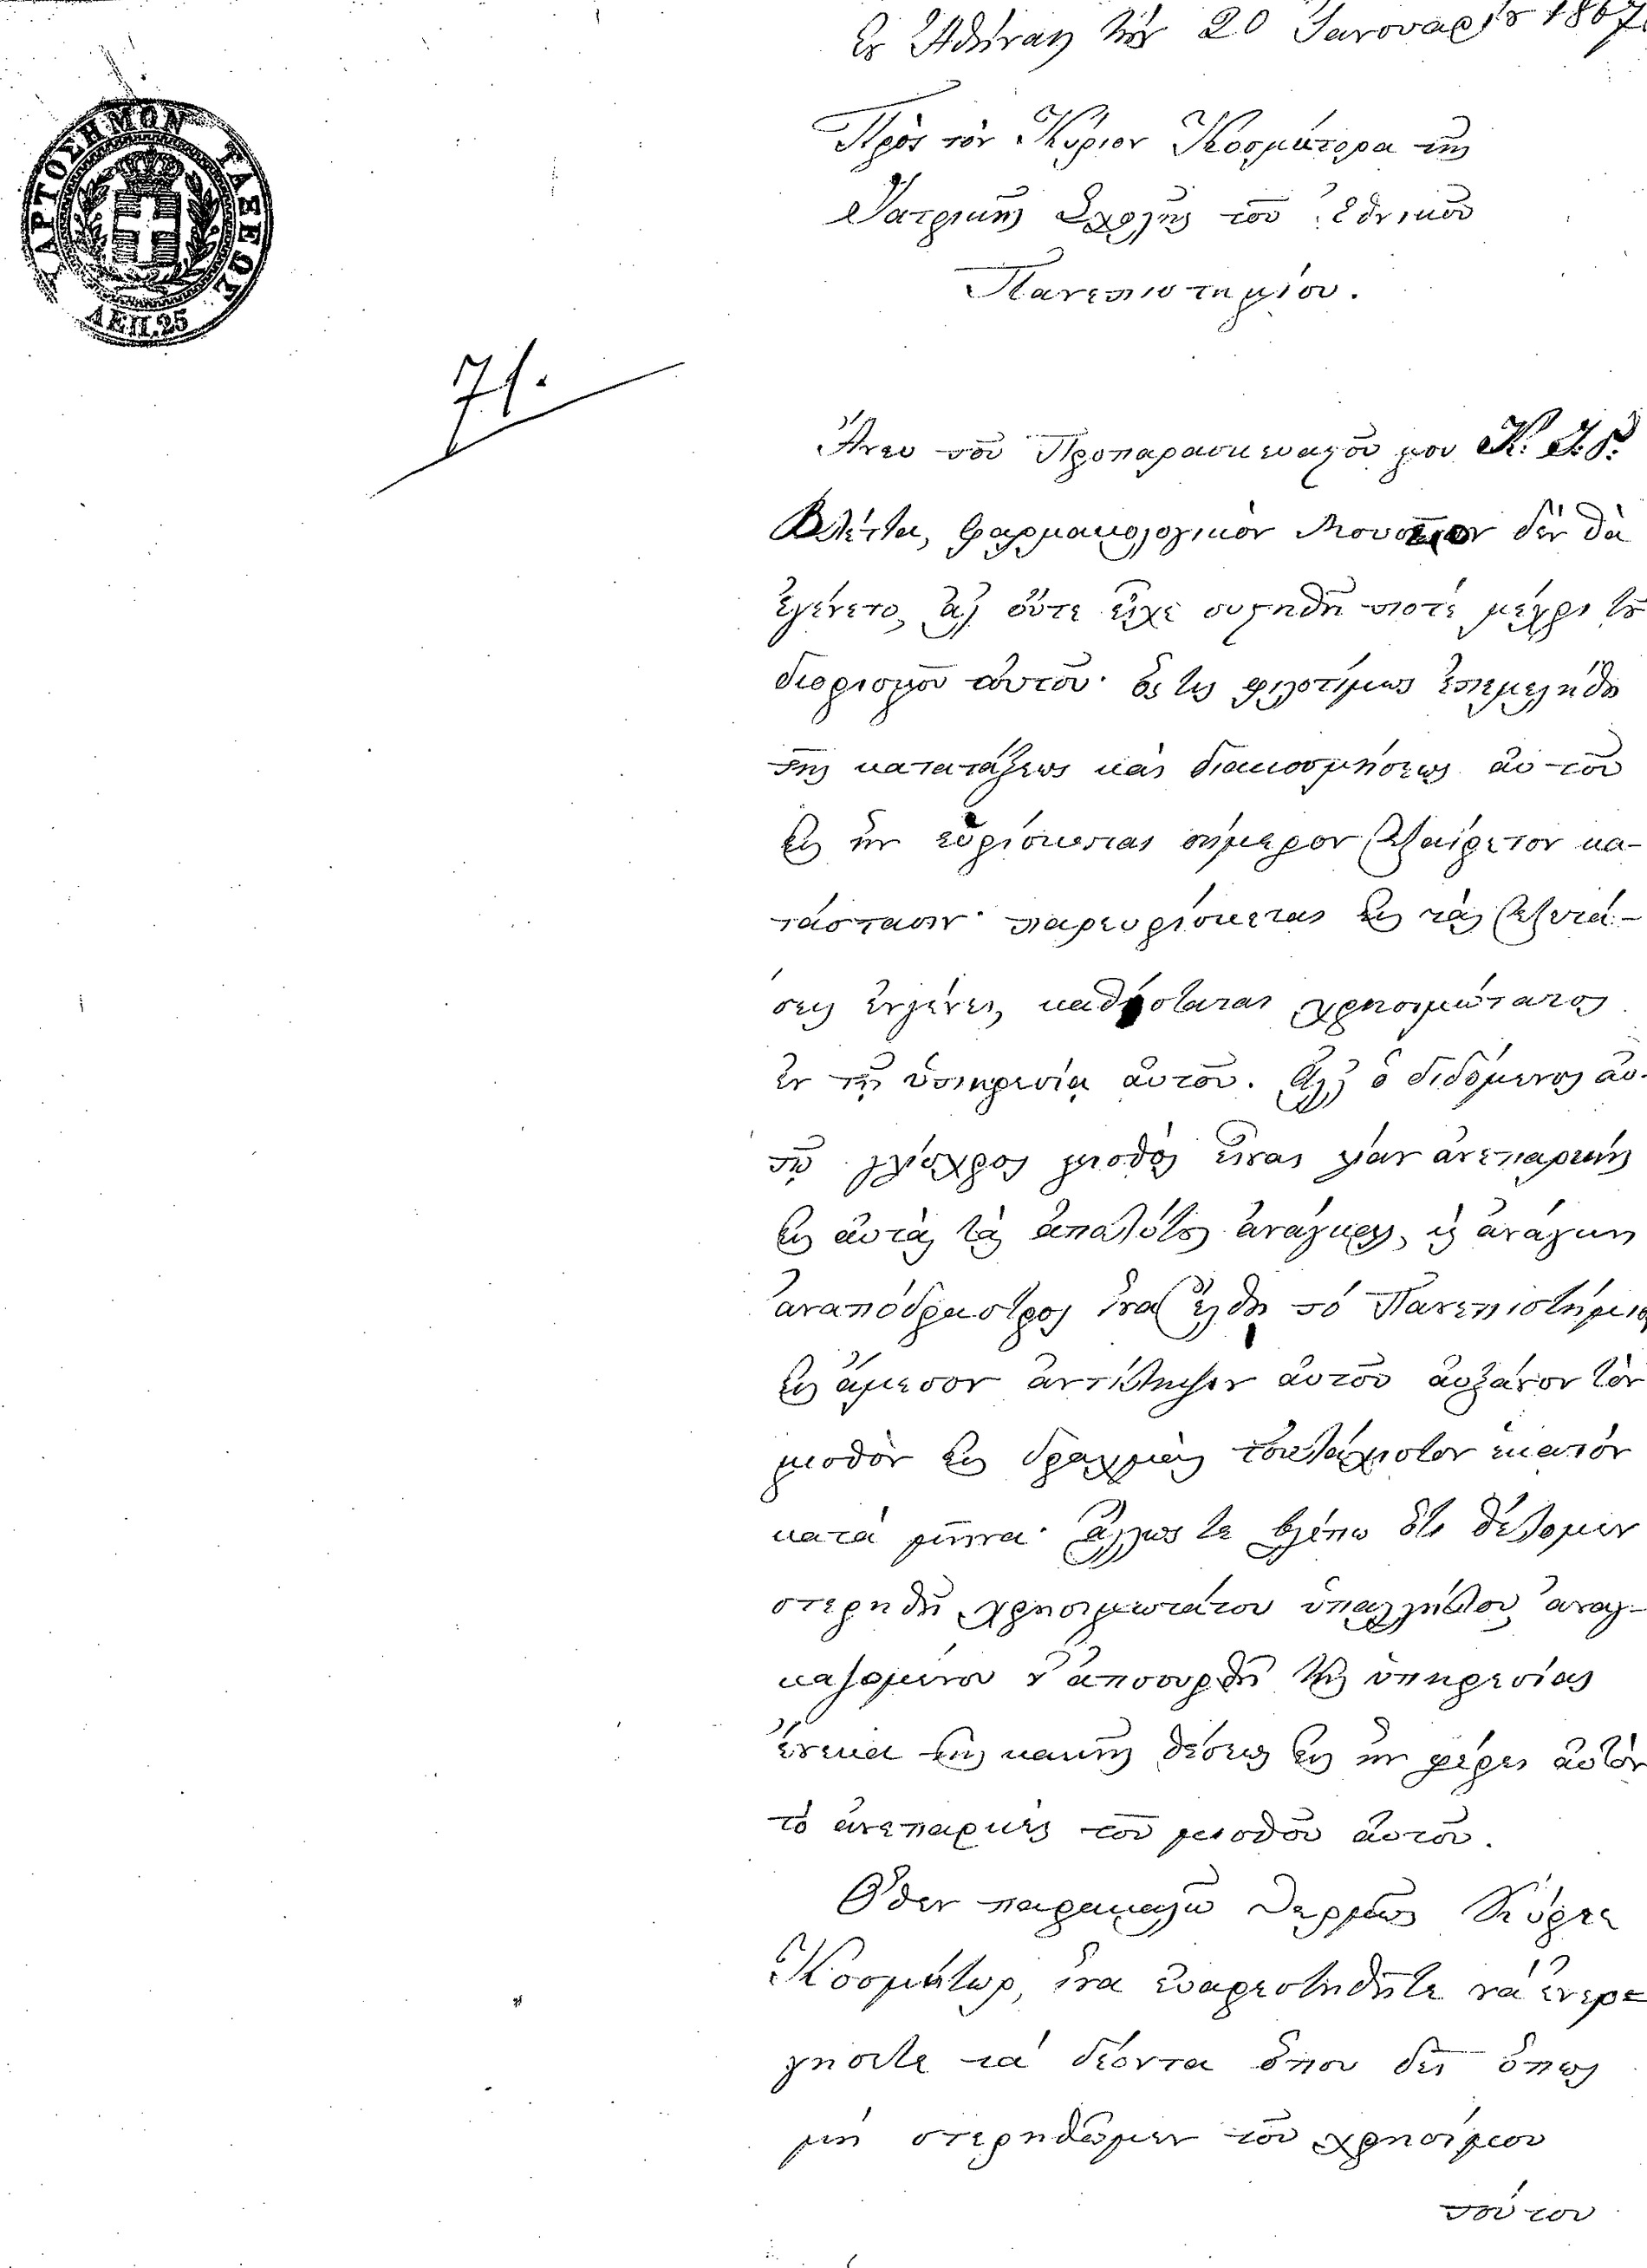 Ἐν Ἀθήναις τὴν 20 Ἰανουαρίου 1867.
ΧΑΡΤΟΣΗΜΟΝ ΤΑΞΕΩΣ
ΛΕΠ. 25
Πρὸς τὸν Κύριον Κοσμήτορα τῆς
Ἰατρικῆς Σχολῆς τοῦ Ἐθνικοῦ
Πανεπιστημίου.
71.
Ἄνευ τοῦ Προπαρασκευαστοῦ μου Κ.
Φαρμακολογικὸν Μουσεῖον δὲν θὰ
ἐγένετο, ἀλλ' οὔτε εἶχε συστηθῆ ποτέ μέχρι τοῦ
διορισμοῦ αὐτοῦ· ὅστις φιλοτίμως ἐπεμελήθη
τῆς κατατάξεως καὶ διακοσμήσεως αὐτοῦ
εἰς ἣν εὑρίσκεται σήμερον ἐξαίρετον κα-
τάστασιν· παρευρίσκεται εἰς τὰς ἐξετά-
σεις καθίσταται χρησιμώτατος
ἐν τῇ ὑπηρεσίᾳ αὐτοῦ. Ἀλλ' ὁ διδόμενος αὐ-
τῷ γλίσχρος μισθὸς εἶναι λίαν ἀνεπαρκὴς
εἰς αὐτὰς τὰς ἀνάγκας, ἡ ἀνάγκη
ἀναπόδραστος ἵνα ἔλθῃ τὸ Πανεπιστήμιον
εἰς ἄμεσον ἀντίληψιν αὐτοῦ αὐξάνον τὸν
μισθὸν εἰς δραχμὰς τοὐλάχιστον ἑκατὸν
κατὰ μῆνα· ἄλλως τε βλέπω ὅτι θέλομεν
στερηθῆ χρησιμωτάτου ὑπαλλήλου ἀναγ-
καζομένου ν' ἀποσυρθῇ τῆς ὑπηρεσίας
ἕνεκα τῆς κακῆς θέσεως εἰς ἣν φέρει αὐτὸν
τὸ ἀνεπαρκὲς τοῦ μισθοῦ αὐτοῦ.
Ὅθεν παρακαλῶ θερμῶς Κύριε
Κοσμῆτωρ, ἵνα εὐαρεστηθῆτε νὰ ἐνερ-
γήσητε τὰ δέοντα ὅπου δεῖ ὅπως
μὴ στερηθῶμεν τοῦ χρησίμου
τούτου